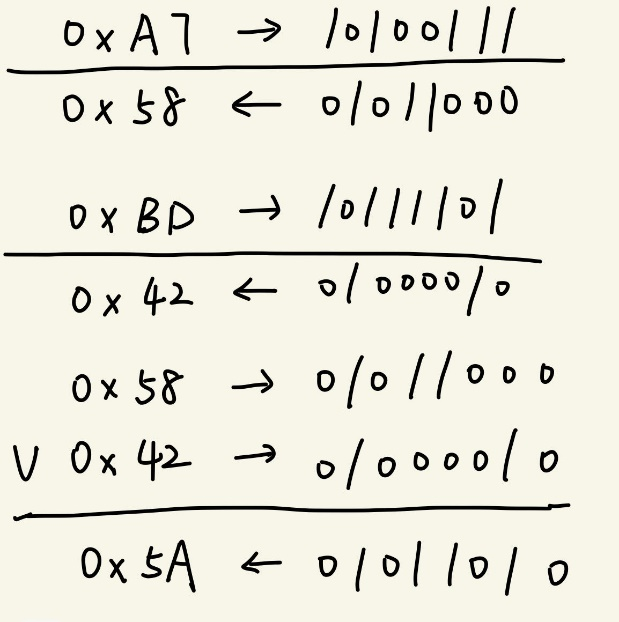 0xA7 → 10100111
0x58 ← 01011000
0xBD → 10111101
0x42 ← 01000010
0x58 → 01011000
V 0x42 → 01000010
0x5A ← 01011010